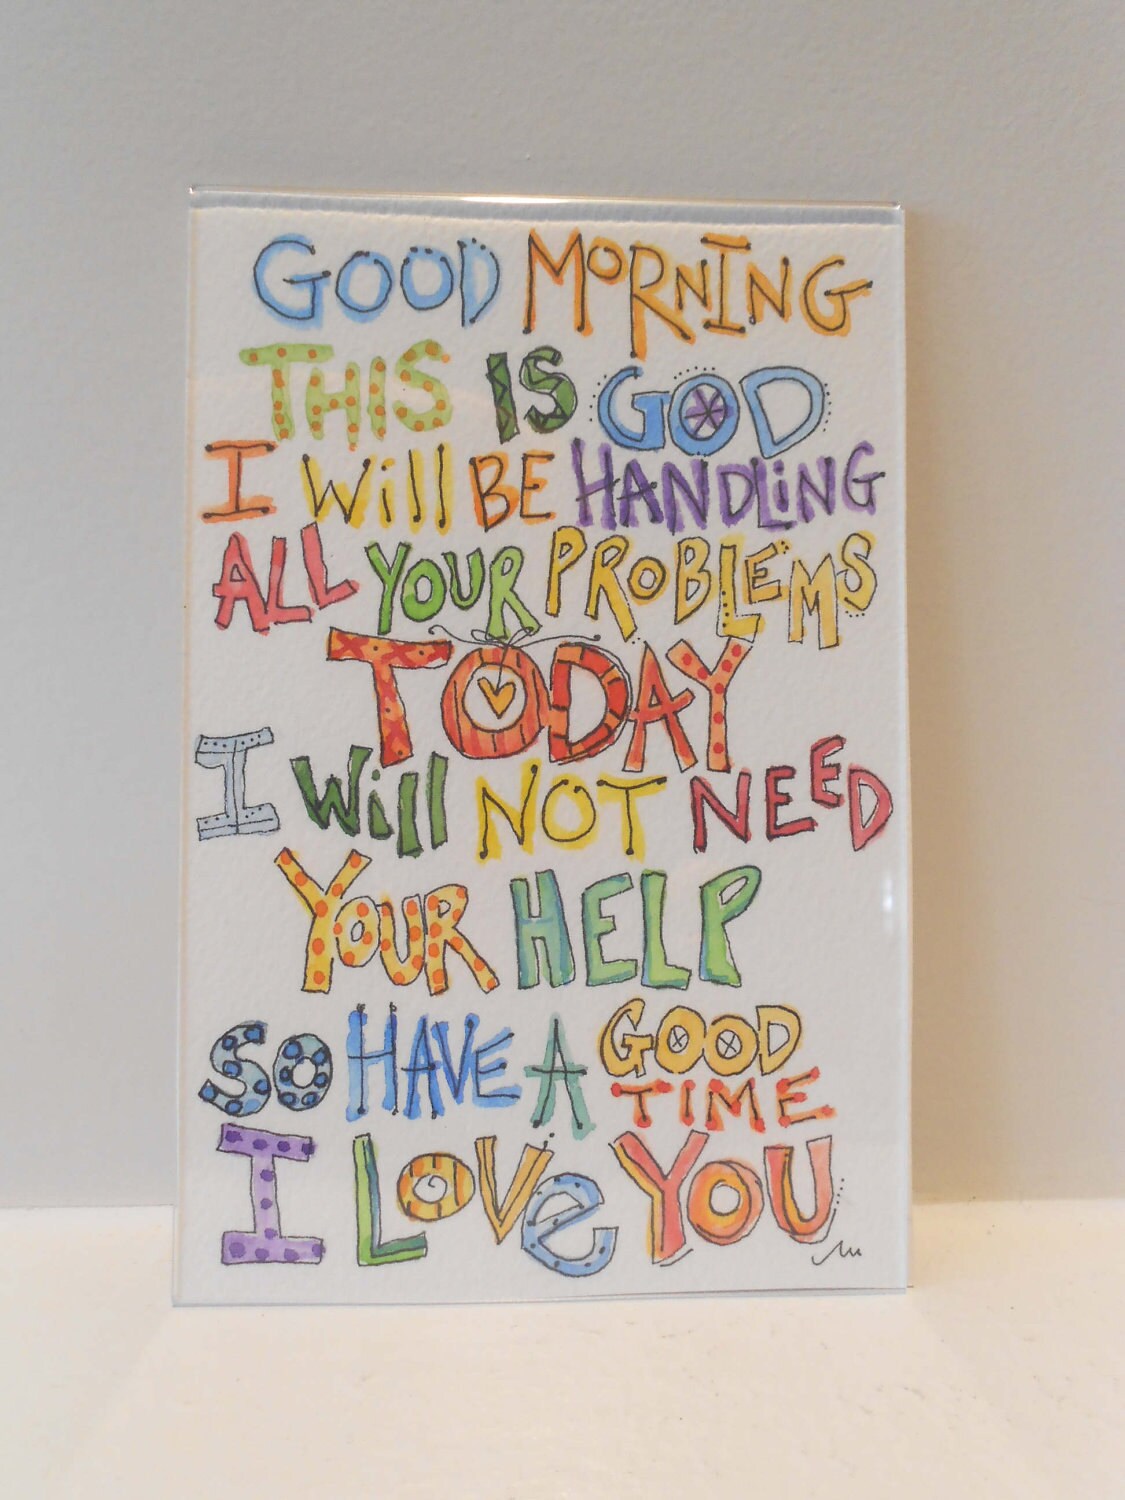 GOOD MORNING
THIS IS GOD
I Will BE HANDLiNG
ALL YOUR PROBLEMS
TODAY
I Will NOT NEED
YOUR HELP
SO HAVE A GOOD
TIME
I LOVe YOU